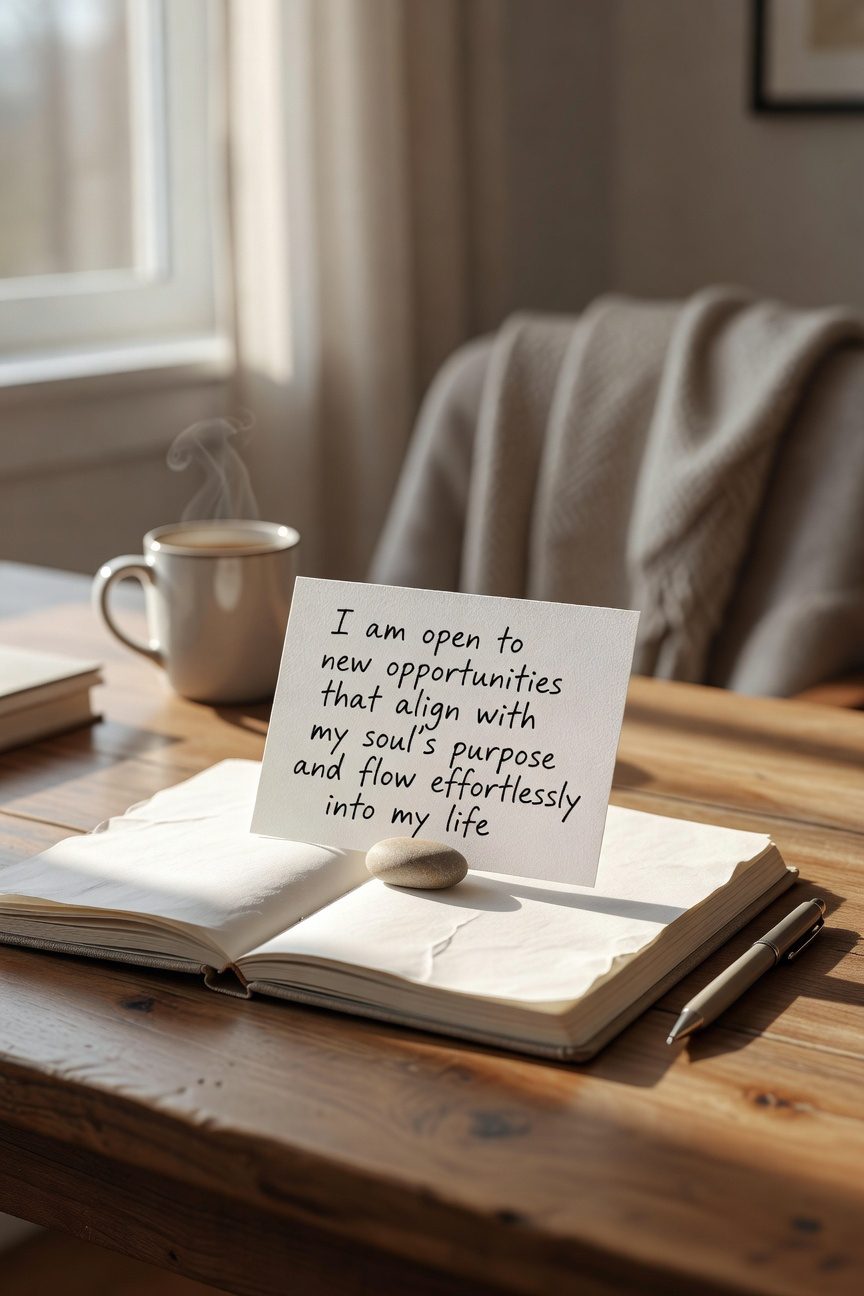 I am open to
new opportunities
that align with
my soul's purpose
and flow effortlessly
into my life